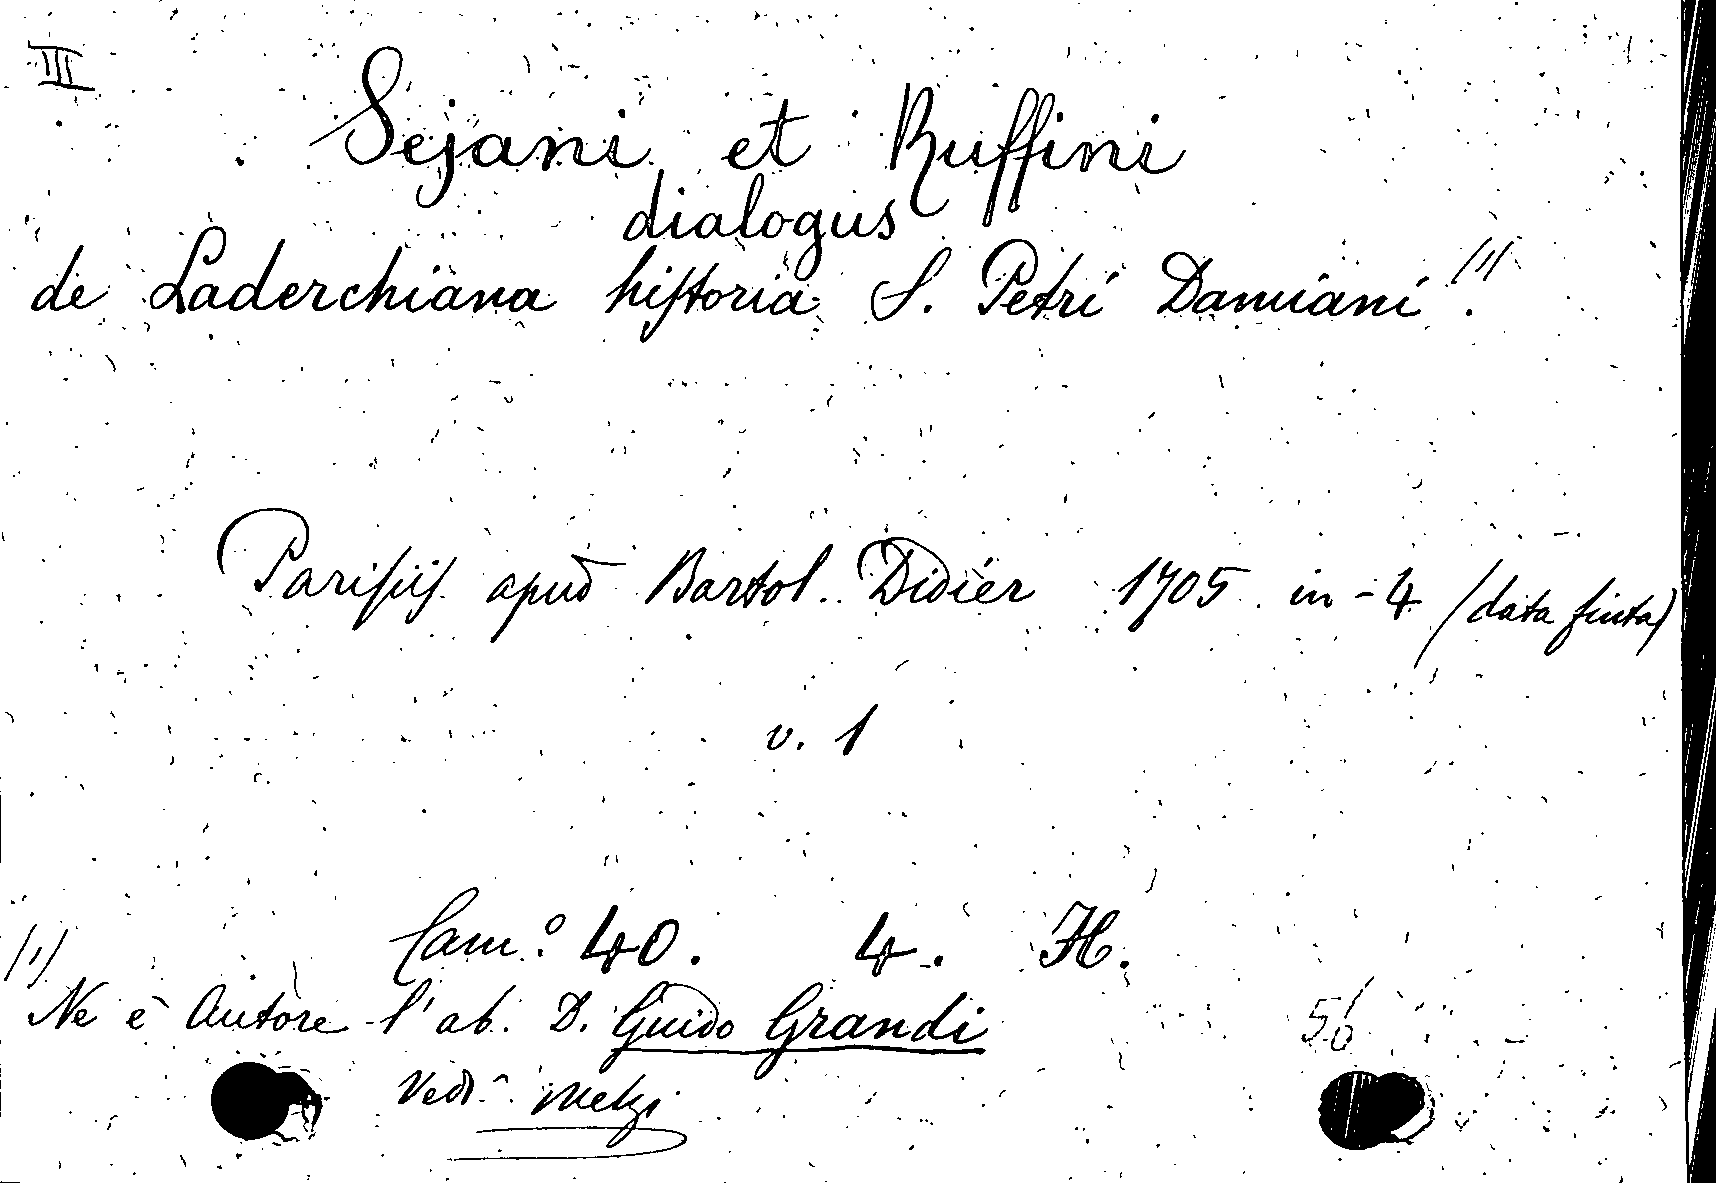 III
Sejani et Ruffini
dialogus
de Laderchiana historia S. Petri Damiani (1).
Parisiis apud Bartol. Didier 1705 in-4 (data finta)
v. 1
Cam.º 40. 4. H.
(1)
Ne è Autore l'ab. D. Guido Grandi
56
Vedi Melzi